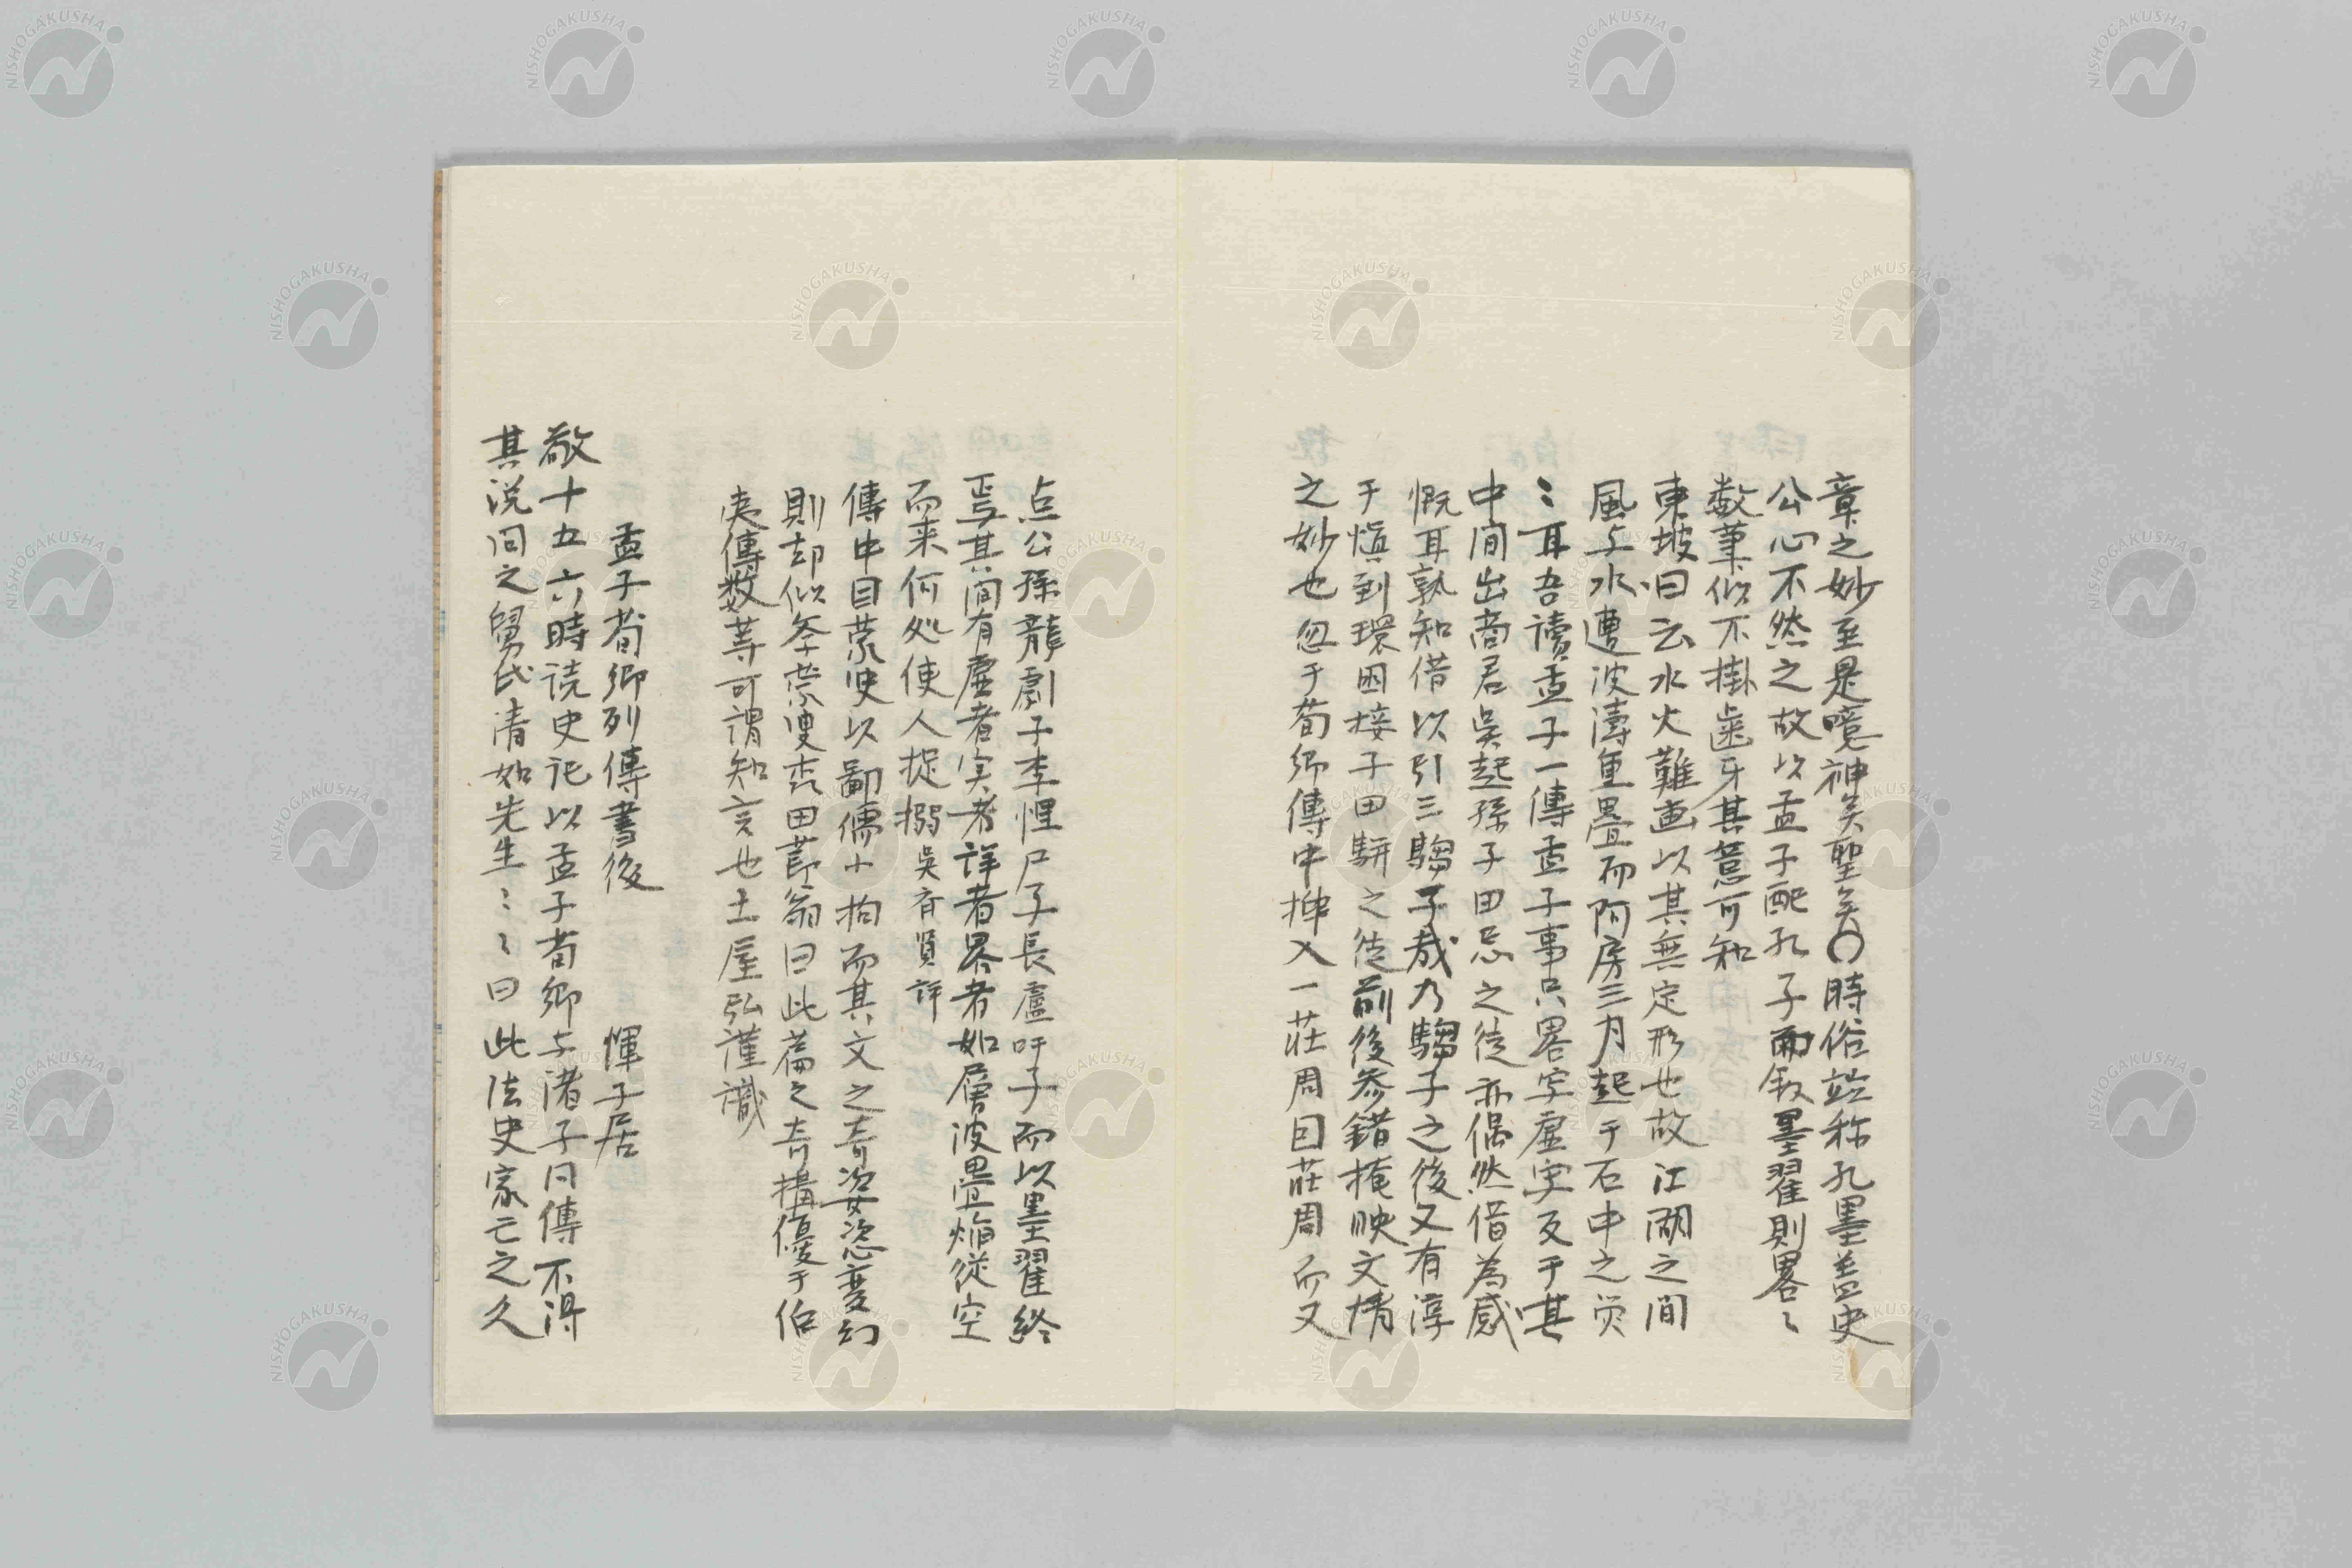 章之妙至是噫神矣聖矣〇時俗竝称孔墨葢史
公心不然之故以孟子配孔子而叙墨翟則畧〻
数筆似不掛歯牙其意可知
東坡曰云水火難画以其無定形也故江湖之間
風与水遭波濤重畳而阿房三月起于石中之
〻耳吾讀孟子一傳孟子事只畧字虚字及于其
中间出商君吳起孫子田忌之徒亦偶然借為感
慨耳孰知借以引三騶子哉乃騶子之後又有淳
于慎到環囷接子田駢之徒前後参錯掩映文情
之妙也忽于荀卿傳中挿入一莊周回莊周而又
点公孫龍劇子李悝尸子長盧吁子而以墨翟終
焉其间有虚者実者詳者畧者如層波畳焔従空
而来何処使人捉搦吳斉賢評
傳中目蒙叟以鄙儒小拘而其文之奇姿恣変幻
則却似条蒙叟来田節翁曰此篇之奇搆優于伯
夷傳数等可謂知言也土屋弘謹識
孟子荀卿列傳書後　惲子居
敬十五六時読史记以孟子荀卿与諸子同傳不得
其说问之舅氏清如先生〻〻曰此法史家亡之久